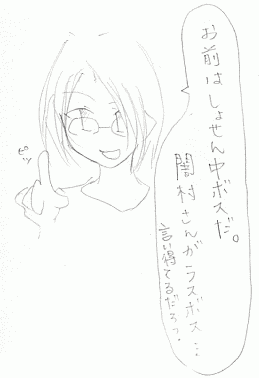 お前はしょせん中ボスだ。
闇村さんがラスボス…
言い得てるだろっ.
ピッ